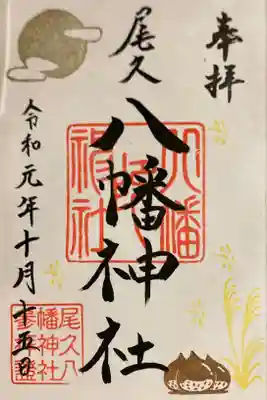 奉拝
尾久
八幡神社
八幡
神社
令和元年十月十五日
尾久八
幡神社